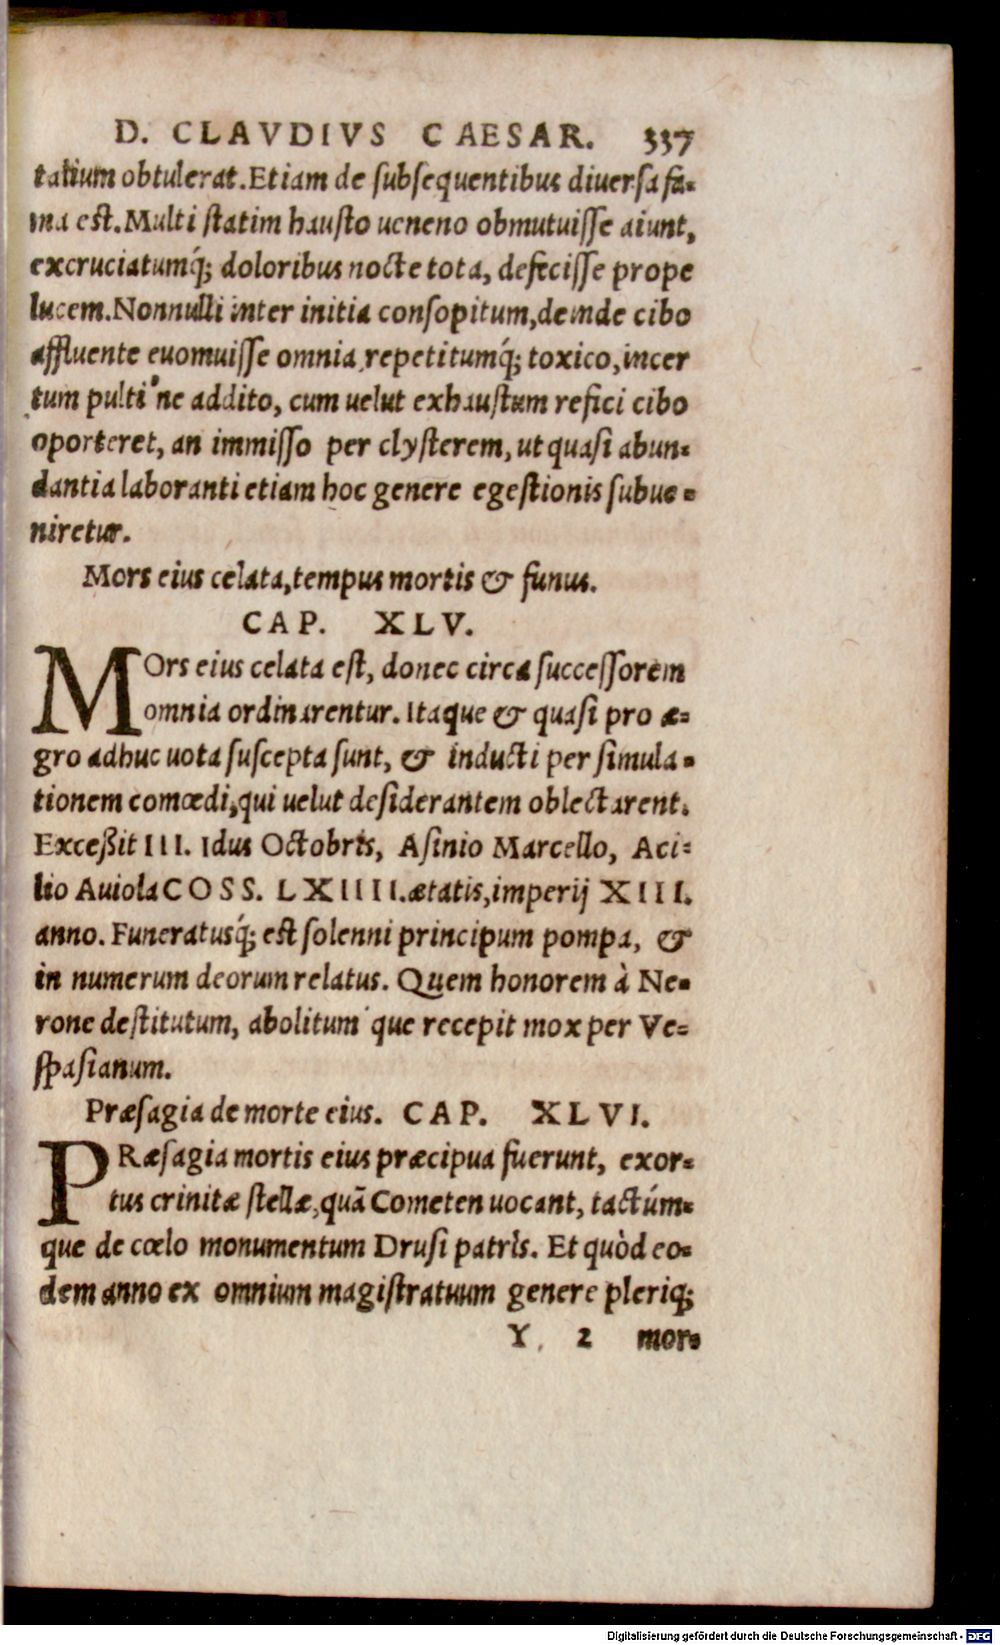 D. CLAVDIVS CAESAR. 337
talium obtulerat. Etiam de ſubſequentibus diuerſa fa-
ma est. Multi ſtatim hauſto ueneno obmutuiſſe aiunt,
excruciatumq́; doloribus nocte tota, defeciſſe prope
lucem. Nonnulli inter initia conſopitum, deinde cibo
affluente euomuiſſe omnia, repetitumq́; toxico, incer
tum pulti ne addito, cum uelut exhauſtum refici cibo
oporteret, an immiſſo per clyſterem, ut quaſi abun-
dantia laboranti etiam hoc genere egeſtionis ſubue-
niretur.
Mors eius celata, tempus mortis & funus.
CAP. XLV.
MOrs eius celata eſt, donec circa ſucceſſorem
omnia ordinarentur. Itaque & quaſi pro æ-
gro adhuc uota ſuſcepta ſunt, & inducti per ſimula-
tionem comœdi, qui uelut deſiderantem oblectarent.
Exceßit III. Idus Octobris, Aſinio Marcello, Aci-
lio Auiola COSS. LXIIII. ætatis, imperij XIII.
anno. Funeratusq́; eſt ſolenni principum pompa, &
in numerum deorum relatus. Quem honorem à Ne-
rone deſtitutum, abolitum que recepit mox per Ve-
ſpaſianum.
Præſagia de morte eius. CAP. XLVI.
PRæſagia mortis eius præcipua fuerunt, exor-
tus crinitæ ſtellæ, quā Cometen uocant, tactúm-
que de cœlo monumentum Druſi patris. Et quòd eo-
dem anno ex omnium magiſtratuum genere pleriq;
Y 2 mor-
Digitalisierung gefördert durch die Deutsche Forschungsgemeinschaft - DFG